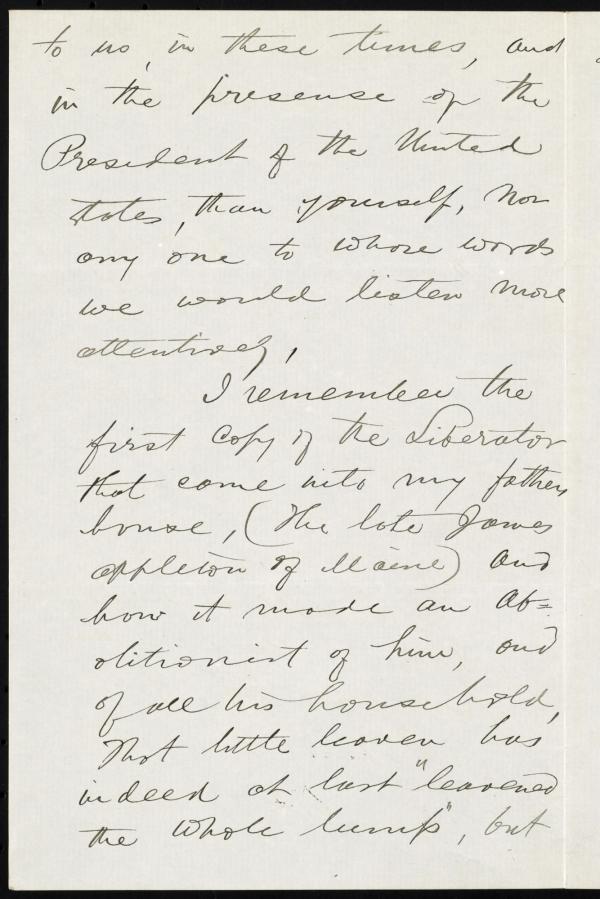 to us, in these times, and
in the presense of the
President of the United
States, than yourself, nor
any one to whose words
we would listen more
attentively,
I remember the
first copy of the Liberator
that came into my fathers
house, (the late James
Appleton of Maine) and
how it made an Ab=
olitionist of him, and
of all his household,
That little leaven has
indeed at last "leavened
the whole lump", but